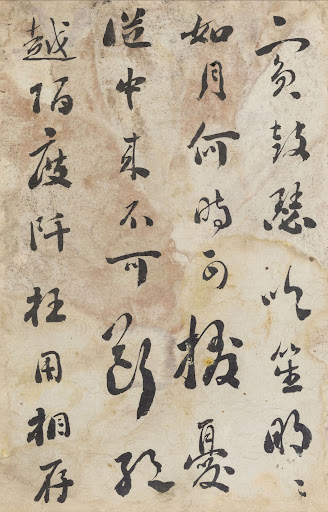 賓鼓瑟吹笙明〻
如月何時可掇憂
從中來不可斷絕
越陌度阡枉用相存